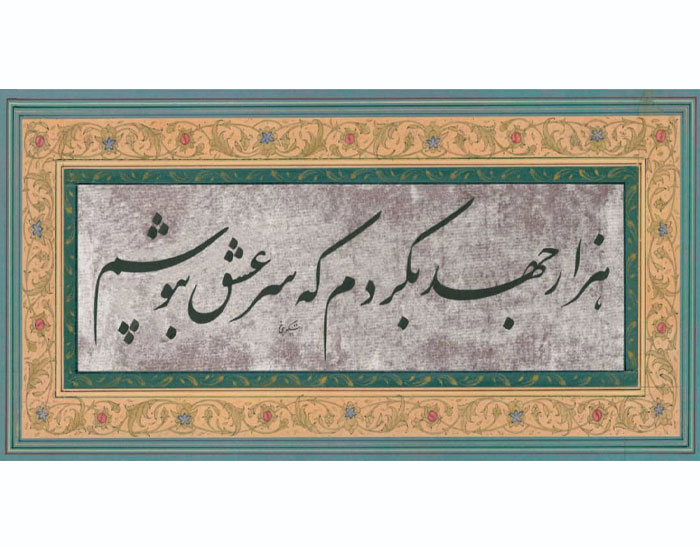 هزار جهد بکردم که سر عشق بپوشم